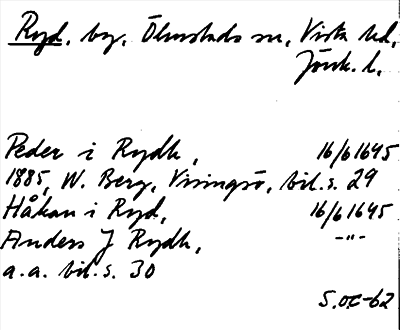 Ryd, by, Ölmstads sn, Vista hd,
Jönk. l.
Peder i Rydh, 16/6 1645
1885, W. Berg, Visingsö, bil. s. 29
Håkan i Ryd, 16/6 1645
Anders J Rydh, -"-
a.a. bil. s. 30
S.OC-62